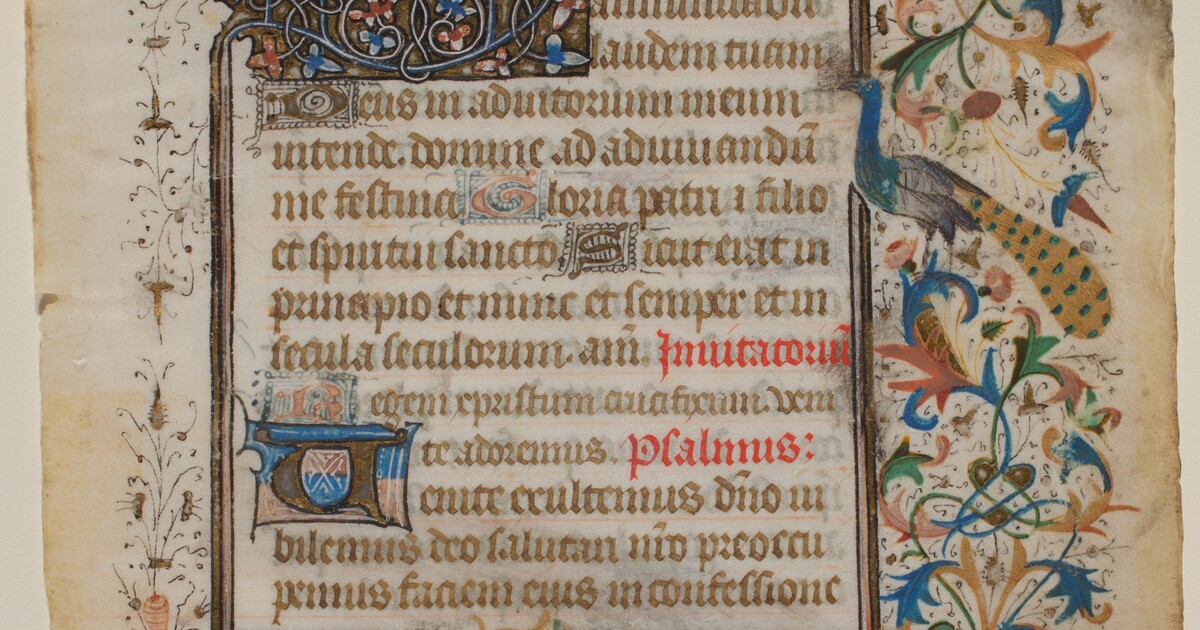 laudem tuam
Deus in adiutorium meum
intende. domine ad adiuuandū
me festina Gloria patri ⁊ filio
et spiritui sancto Sicut erat in
principio et nunc et semper et in
secula seculorum. am̄. Inuitatoriū
Regem cpristum crucifixum. veni
te adoremus. Psalmus:
Uenite exultemus dn̄o iu
bilemus deo salutari nr̄o preoccu
pemus faciem eius in confessione